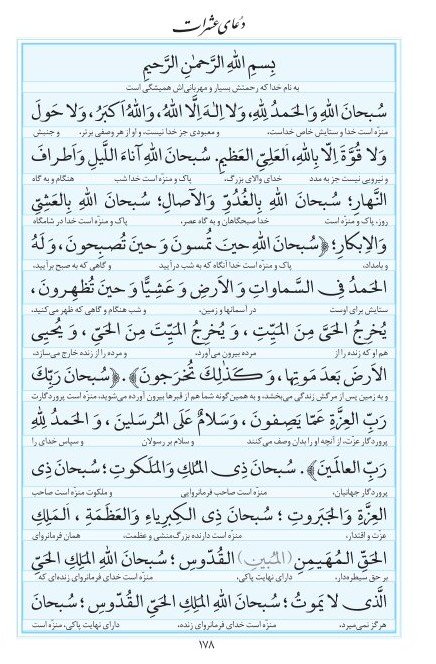 دعای عشرات
بِسمِ اللهِ الرَّحمٰنِ الرَّحیمِ
به نام خدا که رحمتش بسیار و مهربانی‌اش همیشگی است
سُبحانَ اللهِ وَالحَمدُ لِلهِ، وَلا اِلٰهَ اِلَّا اللهُ، وَاللهُ اَکبَرُ، وَلا حَولَ
منزّه است خدا و ستایش خاص خداست، و معبودی جز خدا نیست، و او از هر وصفی برتر، و جنبش
وَلا قُوَّةَ اِلّا بِاللهِ، اَلعَلِیِّ العَظیمِ. سُبحانَ اللهِ آناءَ اللَّیلِ وَاَطرافَ
و نیرویی نیست جز به مدد خدای والای بزرگ، پاک و منزّه است خدا شب هنگام و به گاه
النَّهارِ؛ سُبحانَ اللهِ بِالغُدُوِّ وَالآصالِ؛ سُبحانَ اللهِ بِالعَشِیِّ
روز، پاک و منزّه است خدا صبحگاهان و به گاه عصر، پاک و منزّه است خدا در شامگاه
وَالاِبکارِ؛ ﴿سُبحانَ اللهِ حینَ تُمسونَ وَ حینَ تُصبِحونَ، وَ لَهُ
و بامداد، پاک و منزّه است خدا آنگاه که به شب درآیید و گاهی که به صبح برآیید،
الحَمدُ فِی السَّماواتِ وَ الاَرضِ وَ عَشِیًّا وَ حینَ تُظهِرونَ،
ستایش برای اوست در آسمانها و زمین، و شب هنگام و گاهی که ظهر می‌کنید.
یُخرِجُ الحَیَّ مِنَ المَیِّتِ، وَ یُخرِجُ المَیِّتَ مِنَ الحَیِّ، وَ یُحیِی
هم او که زنده را از مرده بیرون می‌آورد، و مرده را از زنده خارج می‌سازد،
الاَرضَ بَعدَ مَوتِها، وَ کَذٰلِكَ تُخرَجونَ﴾. ﴿سُبحانَ رَبِّكَ
و به زمین پس از مرگش زندگی می‌بخشد، و به همین گونه شما هم از قبرها بیرون آورده می‌شوید، منزّه است پروردگارت
رَبِّ العِزَّةِ عَمّا یَصِفونَ، وَسَلامٌ عَلَی المُرسَلینَ، وَ الحَمدُ لِلهِ
پروردگار عزّت، از آنچه او را بدان وصف می‌کنند و سلام بر رسولان و سپاس خدای را
رَبِّ العالَمینَ﴾. سُبحانَ ذِی المُلكِ وَالمَلَکوتِ؛ سُبحانَ ذِی
پروردگار جهانیان، منزّه است صاحب فرمانروایی و ملکوت منزّه است صاحب
العِزَّةِ وَالجَبَروتِ؛ سُبحانَ ذِی الکِبرِیاءِ وَالعَظَمَةِ، اَلمَلِكِ
عزّت و اقتدار، منزّه است دارنده بزرگ‌منشی و عظمت، همان فرمانروای
الحَقِّ المُهَیمِنِ (المُبینِ) القُدّوسِ؛ سُبحانَ اللهِ المَلِكِ الحَیِّ
بر حق سیطره‌دار، دارای نهایت پاکی، منزّه است خدای فرمانروای زنده‌ای که
الَّذی لا یَموتُ؛ سُبحانَ اللهِ المَلِكِ الحَیِّ القُدّوسِ؛ سُبحانَ
هرگز نمی‌میرد، منزّه است خدای فرمانروای زنده، دارای نهایت پاکی، منزّه است
۱۷۸